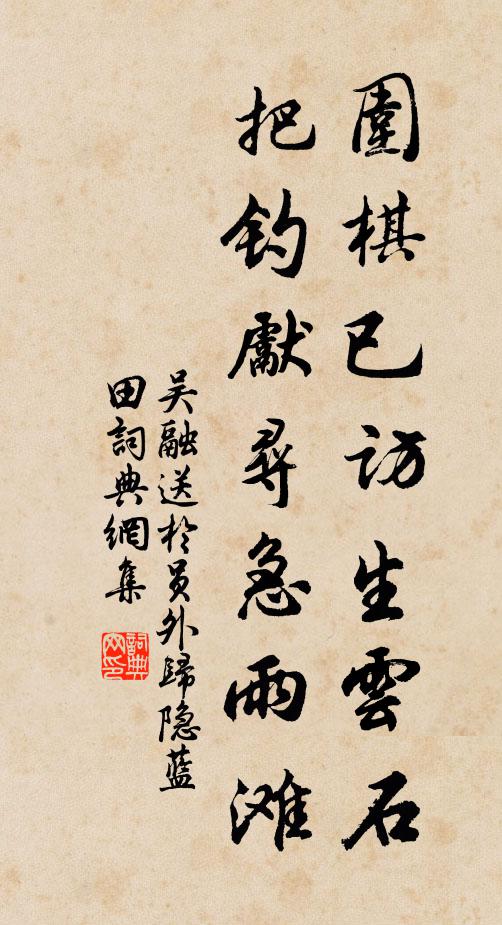 圍棋已訪生雲石
把钓獻尋急雨滩
吴融送於员外歸隐蓝
田詞典網集
詞典
网印